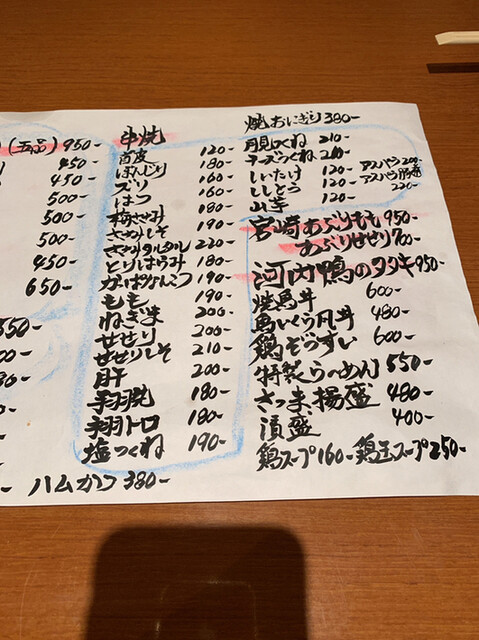 (五品) 950-
450-
450-
500-
500-
500-
450-
650-
550-
串焼
首皮 120-
ぼんじり 180-
ズリ 160-
はつ 160-
梅ささみ 180-
ささみしそ 190-
ささみタルタル 220-
とりはらみ 180-
がっぱなんこつ 190-
もも 190-
ねぎま 200-
せせり 200-
せせりしそ 210-
肝 200-
手羽焼 180-
手羽トロ 180-
塩つくね 190-
ハムかつ 380-
焼おにぎり 380-
月見つくね 210-
チーズつくね 210-
しいたけ 120-
ししとう 120-
山芋 120-
アスパラ 200-
アスパラ豚巻
220-
宮崎あぶりもも 950-
あぶりせせり 700-
河内鴨のタタキ 950-
焼鳥丼 600-
鳥いくら丼 480-
鶏ぞうすい 600-
特製らーめん 550-
さつま揚盛 480-
漬盛 400-
鶏スープ 160- 鶏玉スープ 250-